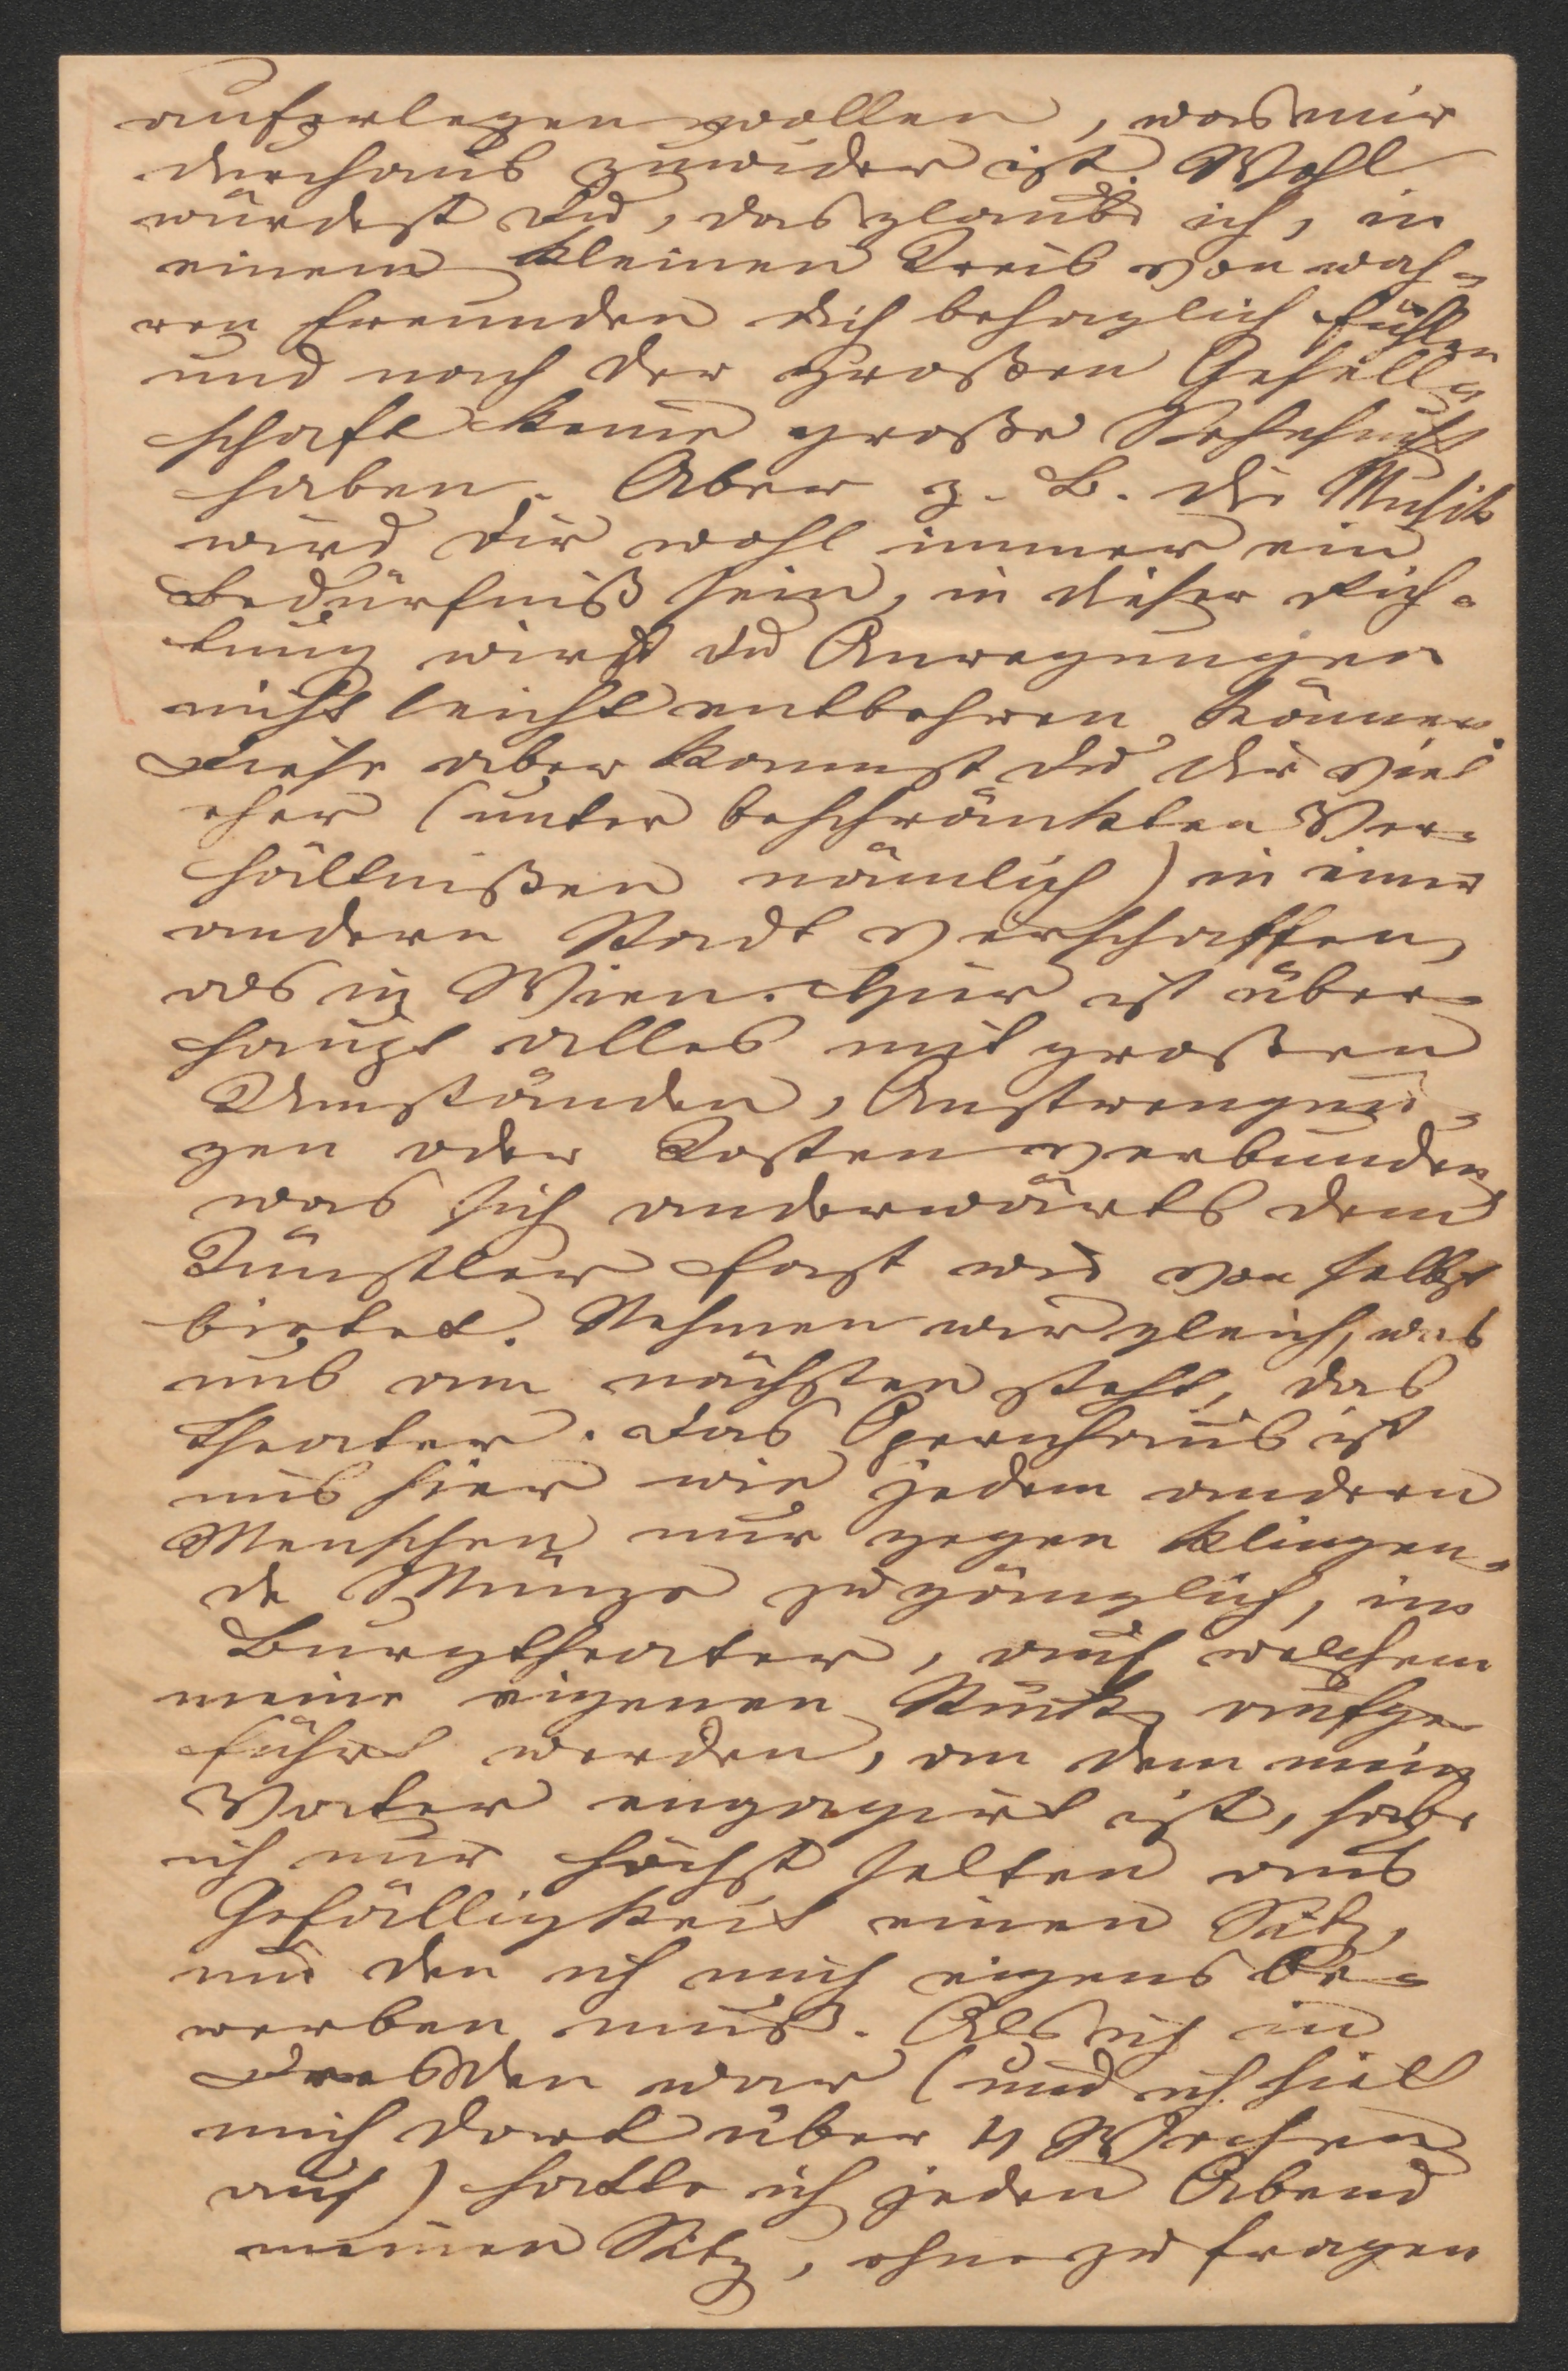 auferlegen wollen, was mir
durchaus zuwider ist. Wohl
würdest Du, das glaube ich, in
einem kleinen Kreis von wah-
ren Freunden Dich behaglich fühlen
und nach der großen Gesell-
schaft keine große Sehnsucht
haben. Aber z. B. die Musik
wird Dir wohl immer ein
Bedürfniß sein, in dieser Rich-
tung wirst Du Anregungen
nicht leicht entbehren können.
Diese aber kannst Du Dir viel
eher (unter beschränkten Ver-
hältnißen nämlich) in einer
andern Stadt verschaffen,
als in Wien. Hier ist über-
haupt alles mit großen
Umständen, Anstrengun-
gen oder Kosten verbunden
was sich anderwärts dem
Künstler fast wie von selbst
bietet. Nehmen wir gleich, was
uns am nächsten steht, das
Theater. Das Opernhaus ist
uns hier wie jedem andern
Menschen nur gegen klingen-
de Münze zugänglich, im
Burgtheater, auf welchem
meine eigenen Stücke aufge-
führt werden, an dem mein
Vater engagirt ist, habe
ich nur höchst selten aus
Gefälligkeit einen Sitz,
um den ich mich eigens be-
werben muß. Als ich in
Dresden war (und ich hielt
mich dort über 4 Wochen
auf) hatte ich jeden Abend
meinen Sitz, ohne zu fragen